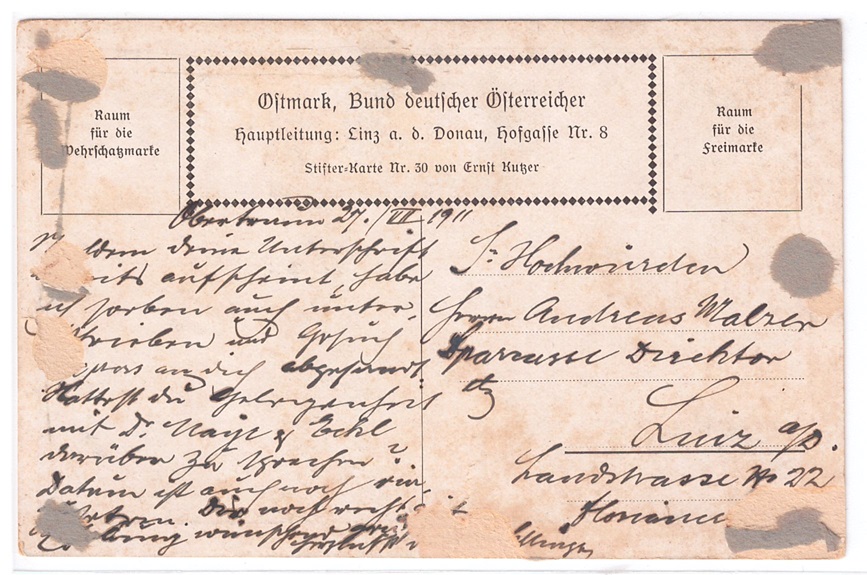 Raum
für die
Wehrschatzmarke
Ostmark, Bund deutscher Österreicher
Hauptleitung: Linz a. d. Donau, Hofgasse Nr. 8
Stifter-Karte Nr. 30 von Ernst Kutzer
Raum
für die
Freimarke
Obertraun 27./VII 1911
dem deine Unterschrift
its aufscheint, habe
ich soeben auch unter-
rieben und Gesuch
an dich abgesandt
Hattest du Gelegenheit
mit Dr.
darüber zu sprechen?
Datum ist auch noch ein-
Dir noch recht
wünschend
Sr Hochwürden
Herrn Andreas Malzer
Sparcasse Direktor
etz
Linz a/D.
Landstrasse No 22